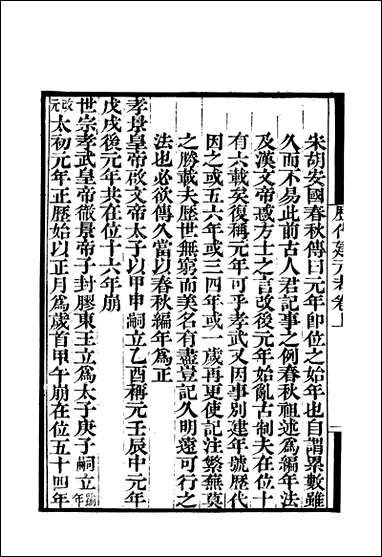 歷代建元考卷上
宋胡安國春秋傳曰元年即位之始年也自謂累數雖
久而不易此前古人君記事之例春秋祖述爲編年法
及漢文帝惑方士之言改後元年始亂古制夫在位十
有六載矣復稱元年可乎孝武又因事別建年號歷代
因之或五六年或三四年或一歲再更使記注繁蕪莫
之勝載夫歷世無窮而美名有盡豈記久明遠可行之
法也必欲傳久當以春秋編年爲正
孝景皇帝啟文帝太子以甲申嗣立乙酉稱元壬辰中元年
戊戌後元年共在位十六年崩
世宗孝武皇帝徹景帝子封膠東王立爲太子庚子嗣立踰年
改元太初元年正歷始以正月爲歲首甲午崩在位五十四年